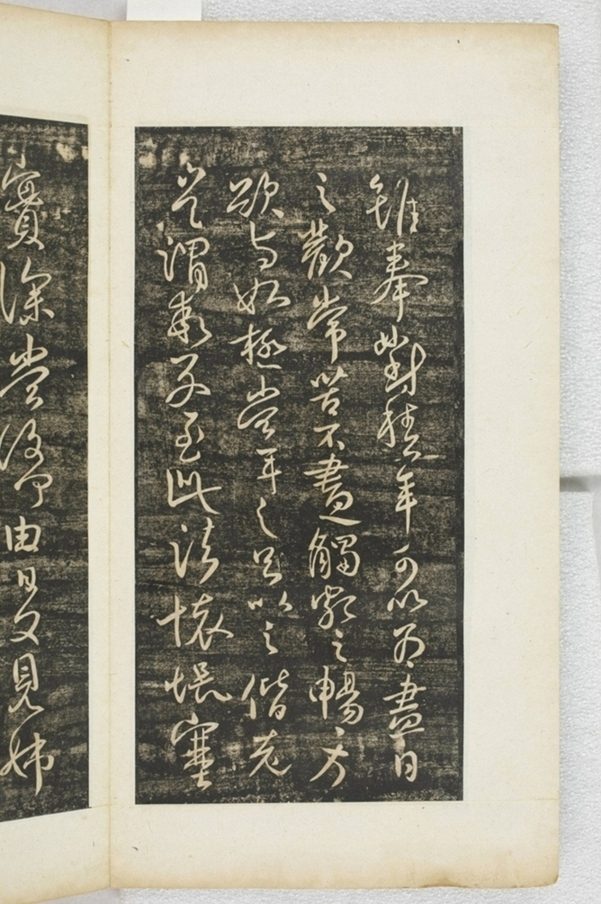 雖奉對積年可以為盡日
之歡常苦不盡觸額之暢方
欲與姊極當年之足以之偕老
豈謂乖別至此諸懷悵塞
實深當復何由日夕見姊